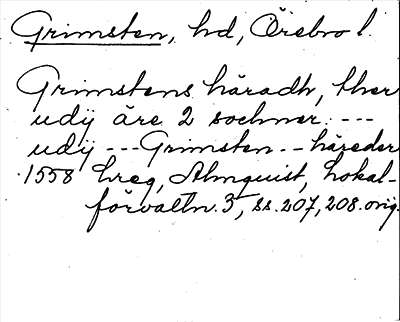 Grimsten, hd, Örebro l.
Grimstens häradh, ther
udÿ äre 2 sochner. ---
udÿ --- Grimsten -- häreder
1558 hreg, Almquist, Lokal-
förvaltn. 3, ss. 207, 208. orig.